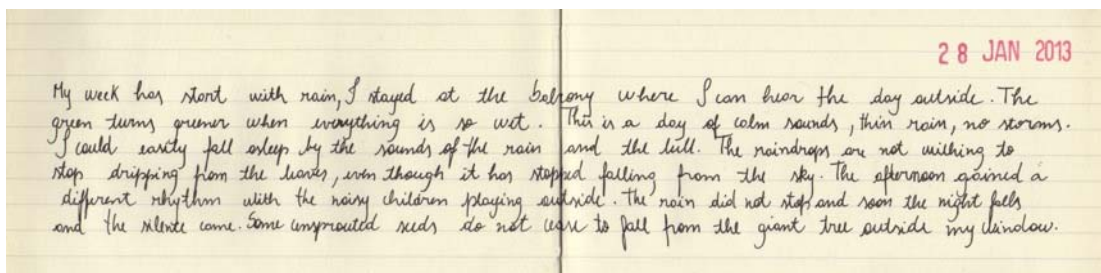 28 JAN 2013
My week has start with rain, I stayed at the balcony where I can hear the day outside. The
green turns greener when everything is so wet. This is a day of calm sounds, thin rain, no storms.
I could easily fall asleep by the sounds of the rain and the lull. The raindrops are not wilhing to
stop dripping from the leaves, even though it has stopped falling from the sky. The afternoon gained a
different rhythm with the noisy children playing outside. The rain did not stop and soon the night falls
and the silence came. Some unsprouted seeds do not cease to fall from the giant tree outside my window.